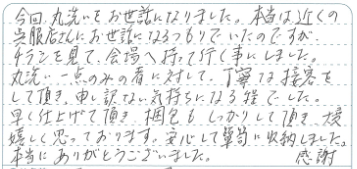 今回丸洗いをお世話になりました。本当は近くの
呉服店さんにお世話になるつもりでいたのですが、
チラシを見て、会場へ持って行く事にしました。
丸洗い一点のみの者に対して、丁寧な接客を
して頂き、申し訳ない気持ちになる程でした。
早く仕上げて頂き、梱包もしっかりして頂き大変
嬉しく思っております。安心して箪笥に収納しました。
本当にありがとうございました。 感謝